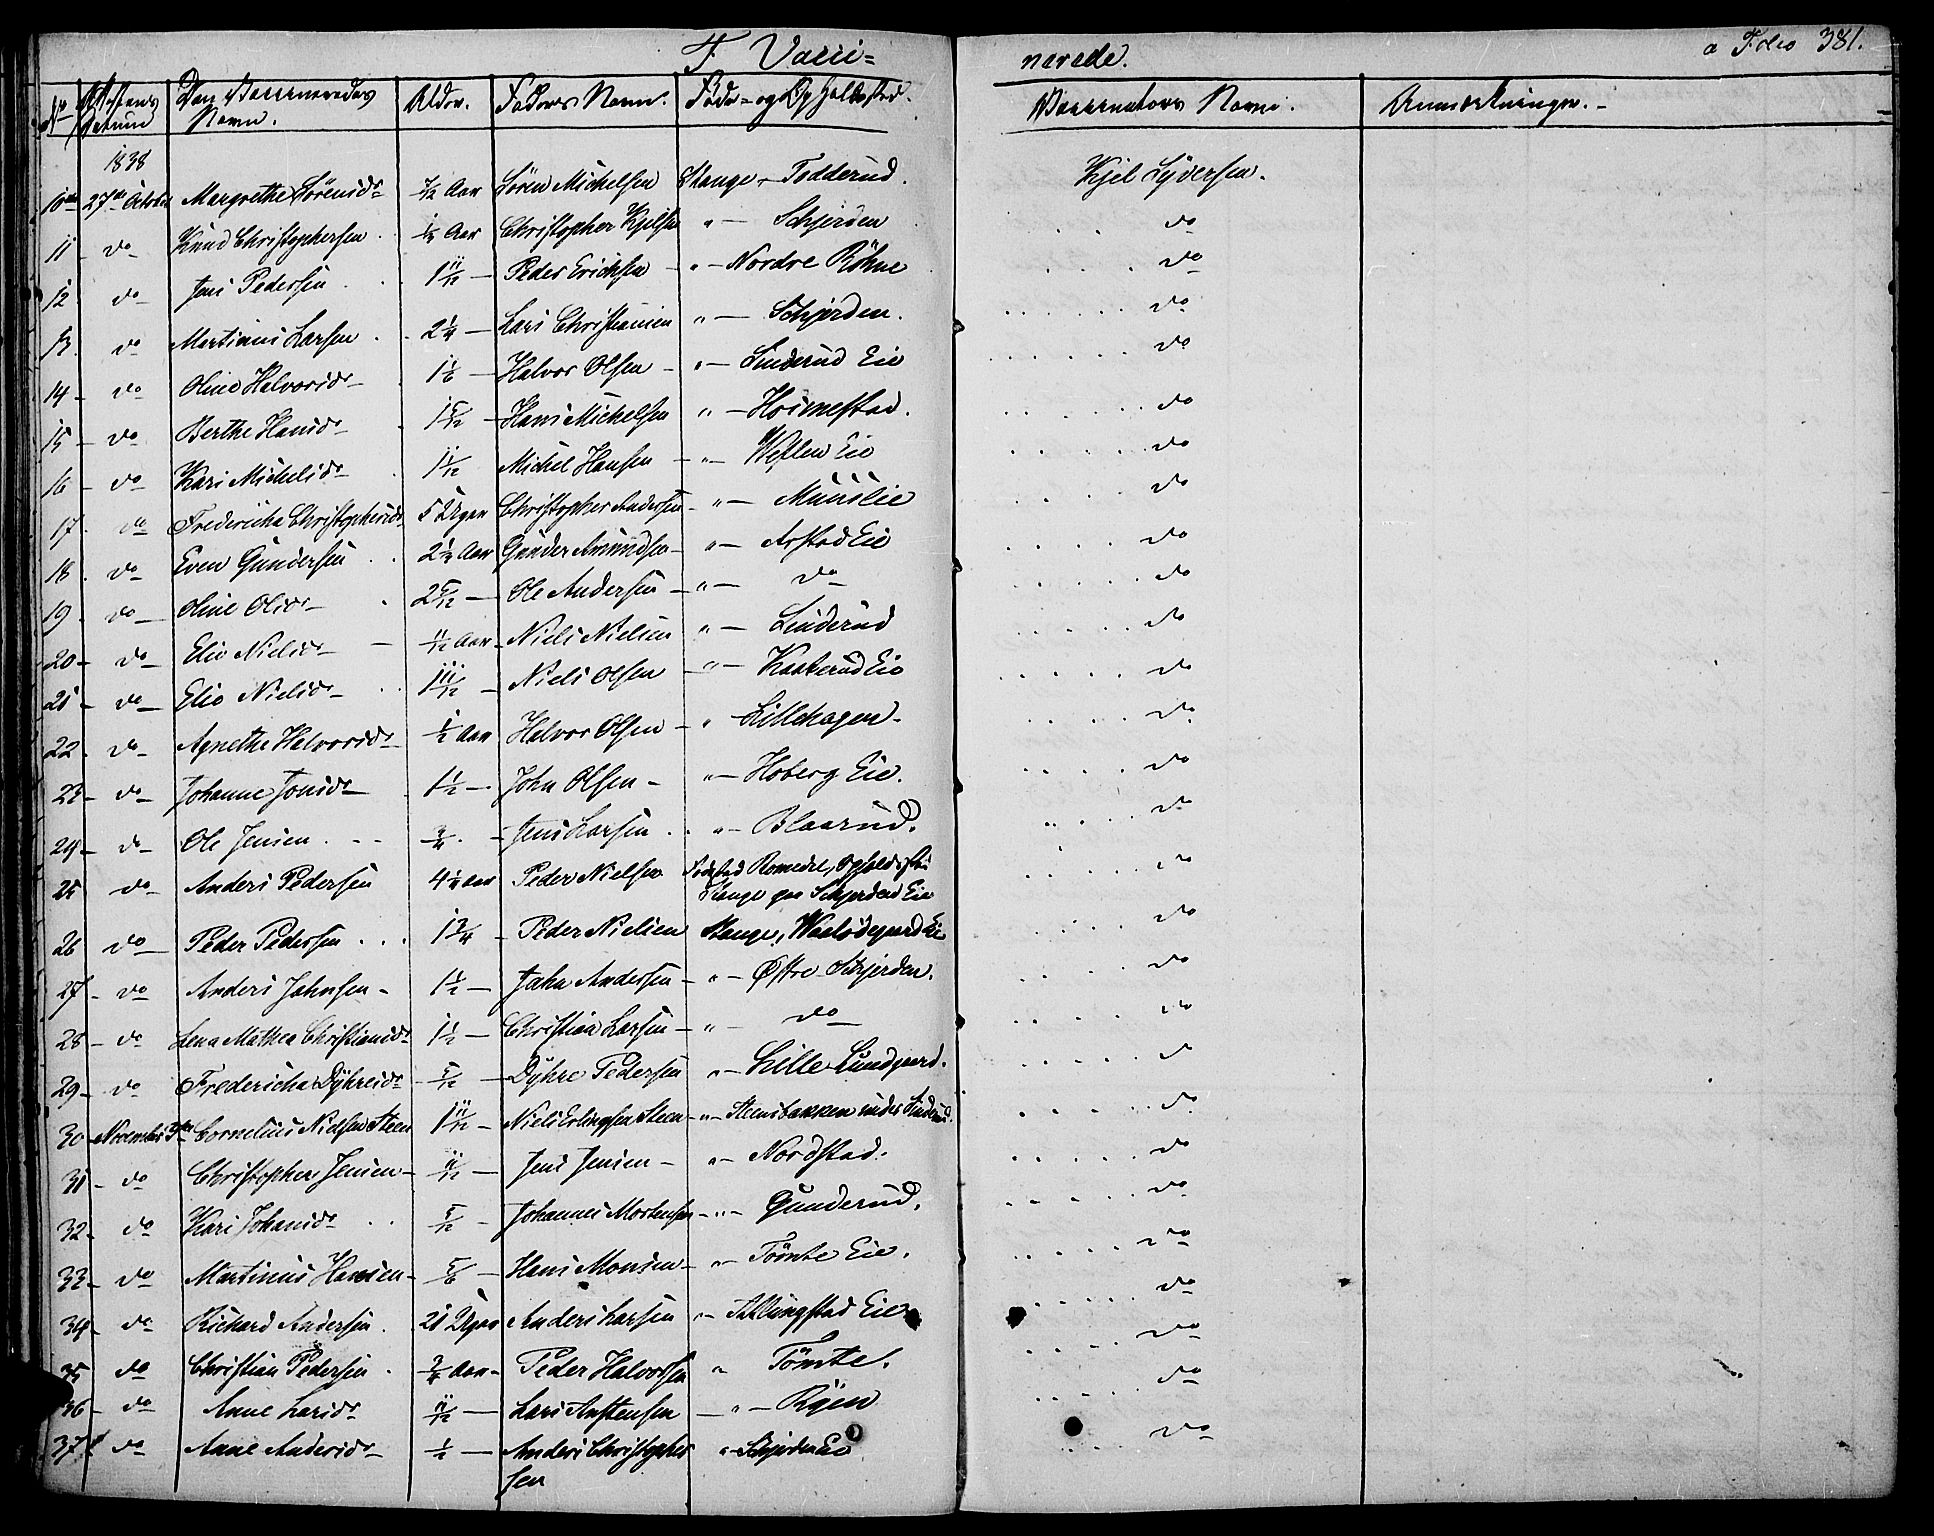 F. Vacci=
nerede.
a Folio 381.
No Attestens Datum Den Vaccineredes Navn. Alder. Faderens Navn. Føde- og Opholdssted. Vaccinateurs Navn. Anmærkninger.
1838
10de 27de October Margrethe Sörensdr 7/12 Aar Sören Michelsen Stange, Fodderud. Kjel Syversen.
11 do Knud Christophersen 1/4 Aar Christopher Kjelsen " Schjerden do
12 do Jens Pedersen 1 11/12 Peder Erichsen " Nordre Röhne do
13 do Martinus Larsen 2 1/4 Lars Christiansen " Schjerden. do
14 do Oline Halvorsdr 1 1/6 Halvor Olsen " Linderud Eie do
15 do Berthe Hansdr 1 5/12 Hans Michelsen " Hoimestad. do
16 do Kari Michelsdr 1 1/12 Michel Hansen " Westlen Eie do
17 do Fredericha Christophersdr 5 Uger Christopher Andersen " Muuslie do
18 do Even Gundersen 2 1/2 Aar Gunder Amundsen " Arstad Eie do
19 do Oline Olsdr 2 5/12 Ole Andersen " do do
20 do Elie Nielsdr 11/12 Aar Niels Nielsen " Linderud do
21 do Elie Nielsdr 1 11/12 Niels Olsen " Kaaterud Eie do
22 do Agnethe Halvorsdr 1/2 Aar Halvor Olsen " Lillehagen do
23 do Johanne Jonsdr 1 1/2 John Olsen " Hoberg Eie. do
24 do Ole Jensen 3/4 Jens Larsen " Blaarud. do
25 do Anders Pedersen 4 1/4 Aar Peder Nielsen Födsted Romedal, Opholdssted do
Stange paa Schjerden Eie
26 do Peder Pedersen 1 3/4 Peder Nielsen Stange, Eie do
27 do Anders Johnsen 1 1/2 John Andersen " Østre Schjerden. do
28 do Lena Mathea Christiansdr 1 1/2 Christian Larsen " do do
29 do Fredericha Dÿhresdr 5/12 Dÿhre Pedersen " Lille Lundgaard. do
30 November 3die Cornelius Nielsen Steen 1 11/12 Niels Erlingsen Steen " Steensbakken under Linderud. do
31 do Christopher Jensen 11/12 Jens Jensen " Nordstad. do
32 do Kari Johansdr 5/12 Johannes Mortensen " Gunderud. do
33 do Martinus Hansen 5/6 Hans Monsen " Tömte Eie. do
34 do Richard Andersen 21 Uger Anders Larsen " Eie do
35 do Christian Pedersen 3/4 Aar Peder Halvorsen " Tömte. do
36 do Anne Larsdr 11/12 Lars Anstensen " Röen do
37 do Anne Andersdr 1/2 Anders Christopher " Schjerden Eie do
sen